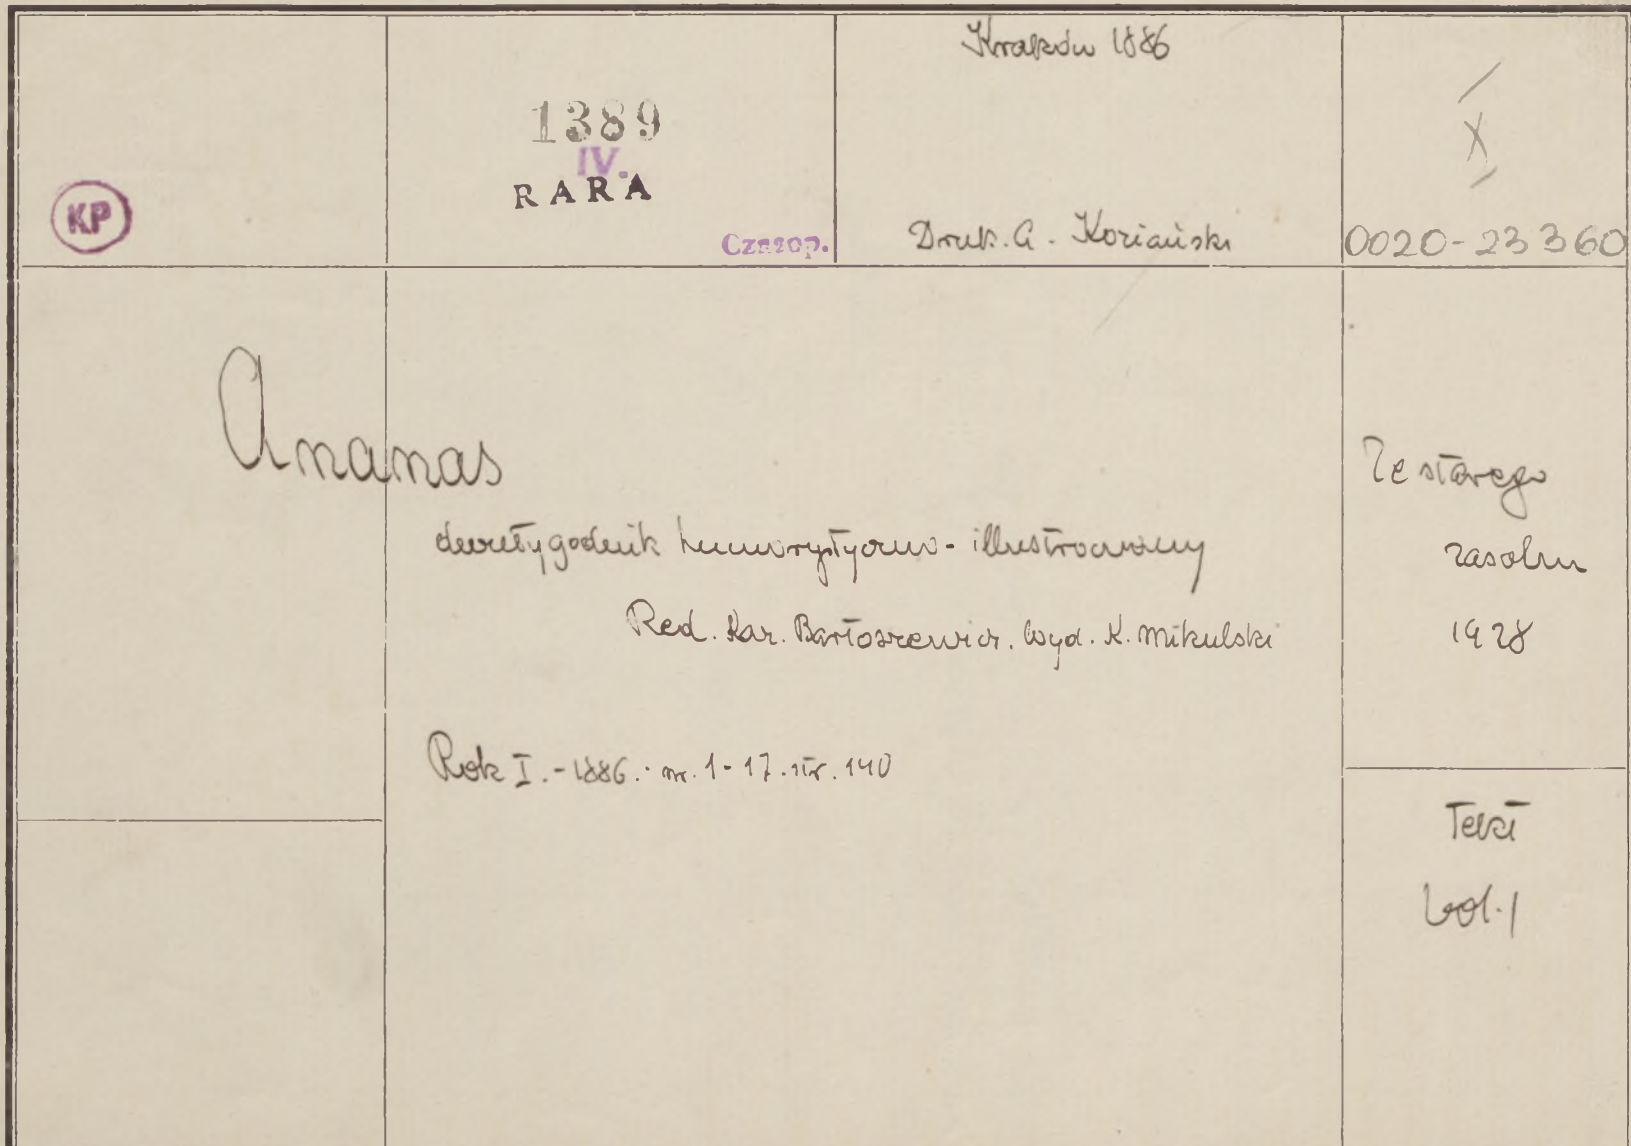 Kraków 1886
1389
IV.
RARA
Czasop.
KP
Druk. A. Koziański
X
0020-23360
Ananas
dwutygodnik humorystyczno-illustrowany
Red. Kar. Bartoszewicz. Wyd. K. Mikulski
Rok I.-1886.-nr. 1-17. str. 140
Ze starego
zasobu
1928
Tekt
vol. 1